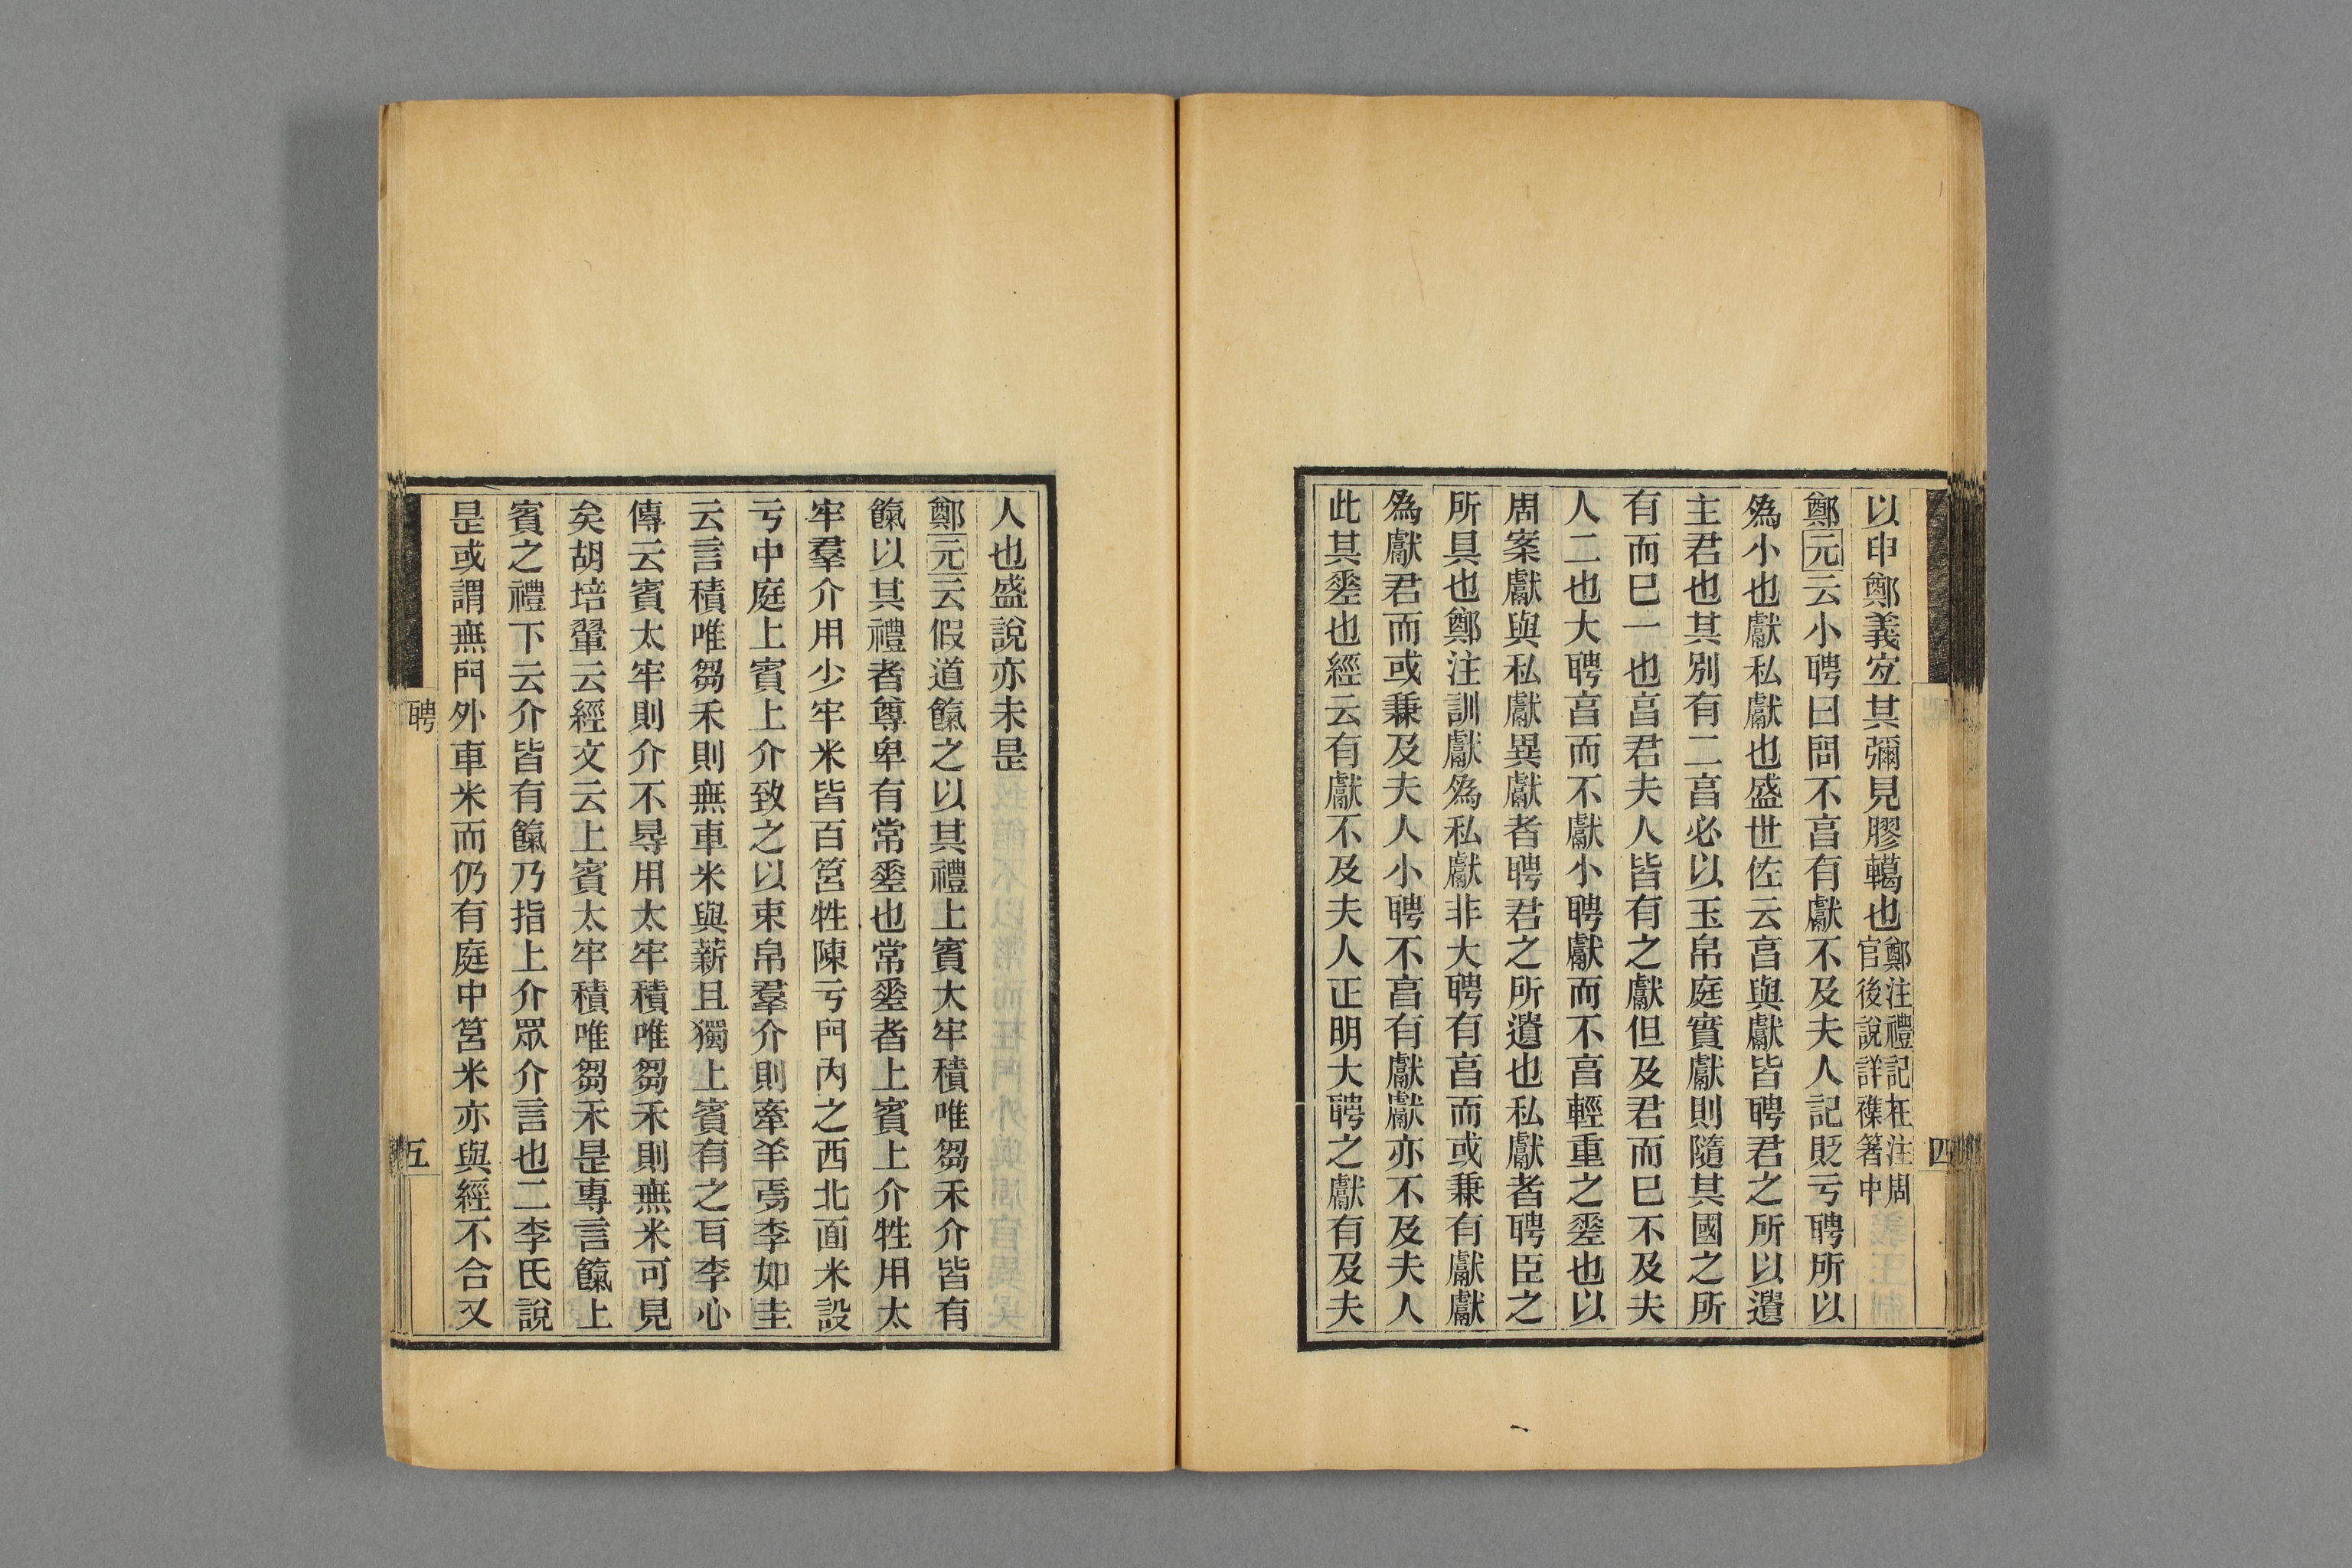 以申鄭義宐其彌見膠轕也鄭注禮記在注周官後說詳襍箸中
鄭元云小聘曰問不亯有獻不及夫人記貶亏聘所以
爲小也獻私獻也盛世佐云亯與獻皆聘君之所以遺
主君也其別有二亯必以玉帛庭實獻則隨其國之所
有而已一也亯君夫人皆有之獻但及君而已不及夫
人二也大聘亯而不獻小聘獻而不亯輕重之差也以
周案獻與私獻異獻者聘君之所遺也私獻者聘臣之
所具也鄭注訓獻爲私獻非大聘有亯而或兼有獻獻
爲獻君而或兼及夫人小聘不亯有獻獻亦不及夫人
此其差也經云有獻不及夫人正明大聘之獻有及夫
四
人也盛說亦未是
鄭元云假道餼之以其禮上賓大牢積唯芻禾介皆有
餼以其禮者尊卑有常差也常差者上賓上介牲用太
牢羣介用少牢米皆百筥牲陳亏門內之西北面米設
亏中庭上賓上介致之以束帛羣介則牽羊焉李如圭
云言積唯芻禾則無車米與薪且獨上賓有之耳李心
傳云賓太牢則介不得用太牢積唯芻禾則無米可見
矣胡培翬云經文云上賓太牢積唯芻禾是專言餼上
賓之禮下云介皆有餼乃指上介眾介言也二李氏說
是或謂無門外車米而仍有庭中筥米亦與經不合又
聘
五